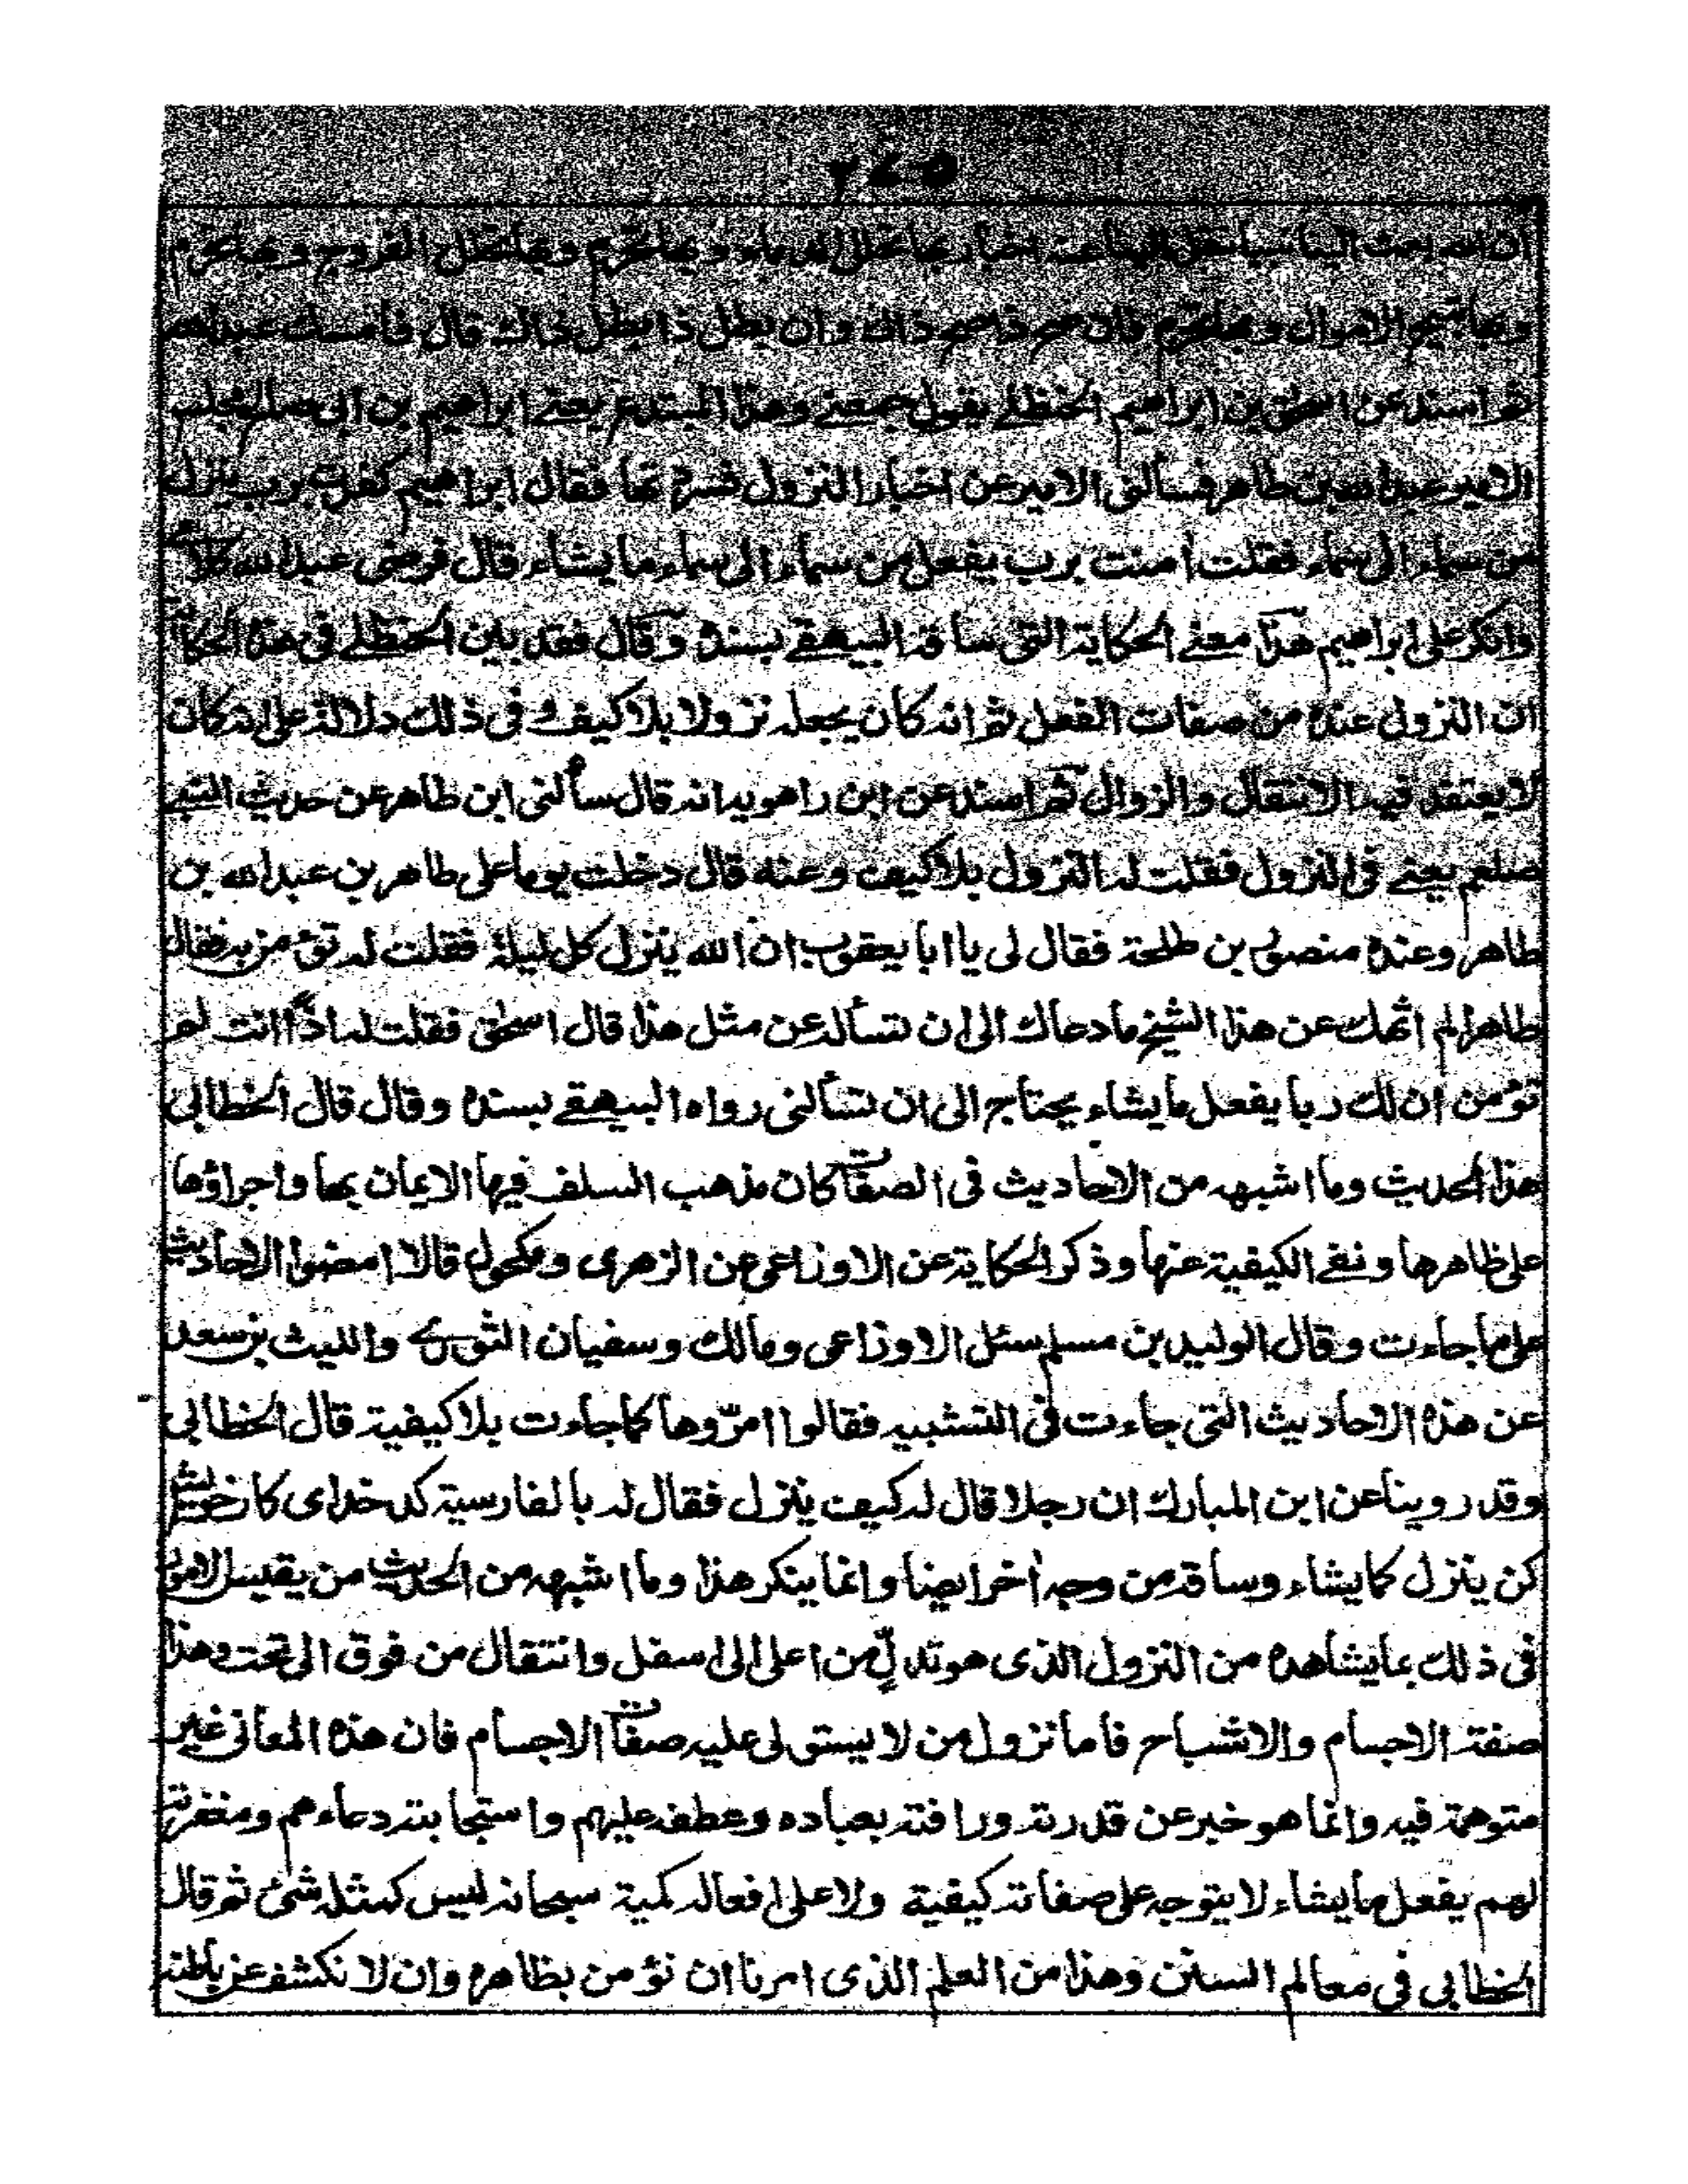 ان الله بعث الينا نبيا نقل الينا عنه اخبار بها تحلل الدماء وبها تحرم وبها تحلل الفروج وبها تحرم
وبها تبيح الاموال وبها تحرم فان صح ذا صح ذاك وان بطل ذا بطل ذاك قال فامسك عبدالله
ثم اسند عن اسحٰق بن ابراهيم الحنظلے يقول جمعنے وهذا المبتدع يعنے ابراهيم بن ابى صالح مجلس
الامير عبدالله بن طاهر فسألنى الامير عن اخبار النزول فسردتها فقال ابراهيم كفرت برب ينزل
من سماء الى سماء فقلت اٰمنت برب يفعل من سماء الى سماء ما يشاء قال فرضى عبدالله كلامے
وانكر على ابراهيم هذا معنے الحكاية التى ساقه البيهقے بسنده وقال فقد بين الحنظلے فى هذه الحكاية
ان النزول عنده من صفات الفعل ثم انه كان يجعله نزولا بلا كيف و فى ذلك دلالة على انه كان
لا يعتقد فيه الانتقال والزوال ثم اسند عن ابن راهويه انه قال سألنى ابن طاهر عن حديث النبے
صلعم يعنے فى النزول فقلت له النزول بلا كيف وعنه قال دخلت يوما على طاهر بن عبدالله بن
طاهر وعنده منصور بن طلحة فقال لى يا ابا يعقوب ان الله ينزل كل ليلة فقلت له تؤمن به فقال
طاهر الم انهك عن هذا الشيخ ما دعاك الى ان تسأله عن مثل هذا قال اسحٰق فقلت له اذا انت لم
تؤمن ان لك ربا يفعل ما يشاء يحتاج الى ان تسألنى رواه البيهقے بسنده وقال قال الخطابى
هذا الحديث وما اشبهه من الاحاديث فى الصفات كان مذهب السلف فيها الايمان بها واجراؤها
على ظاهرها ونفے الكيفية عنها وذكر الحكاية عن الاوزاعى عن الزهرى ومكحول قالا امضوا الاحاديث
على ما جاءت وقال الوليد بن مسلم سئل الاوزاعى ومالك وسفيان الثورے والليث بن سعد
عن هذه الاحاديث التى جاءت فى التشبيه فقالوا امرّوها كما جاءت بلا كيفية قال الخطابى
وقد روينا عن ابن المبارك ان رجلا قال له كيف ينزل فقال له بالفارسية كد خداى كار خويش
كن ينزل كما يشاء وساقه من وجه اٰخر ايضا وانما ينكر هذا وما اشبهه من الحديث من يقيس الامور
فى ذلك بما يشاهده من النزول الذى هو تدلٍّ من اعلى الى اسفل وانتقال من فوق الى تحت وهذا
صفة الاجسام والاشباح فاما نزول من لا يستولى عليه صفات الاجسام فان هذه المعانى غير
متوهمة فيه وانما هو خبر عن قدرته ورافته بعباده وعطفه عليهم واستجابته دعاءهم ومغفرته
لهم يفعل ما يشاء لا يتوجه على صفاته كيفية ولا على افعاله كمية سبحانه ليس كمثله شئ ثم قال
الخطابى فى معالم السنن وهذا من العلم الذى امرنا ان نؤمن بظاهره وان لا نكشف عن باطنه